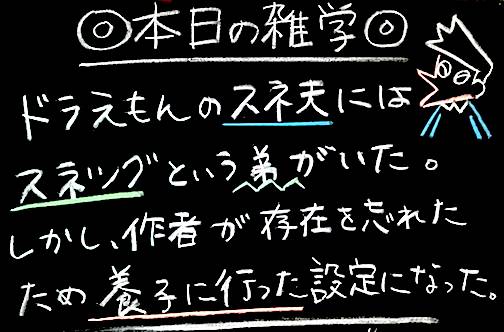 ◎本日の雑学◎
ドラえもんのスネ夫には
スネツグという弟がいた。
しかし、作者が存在を忘れた
ため養子に行った設定になった。